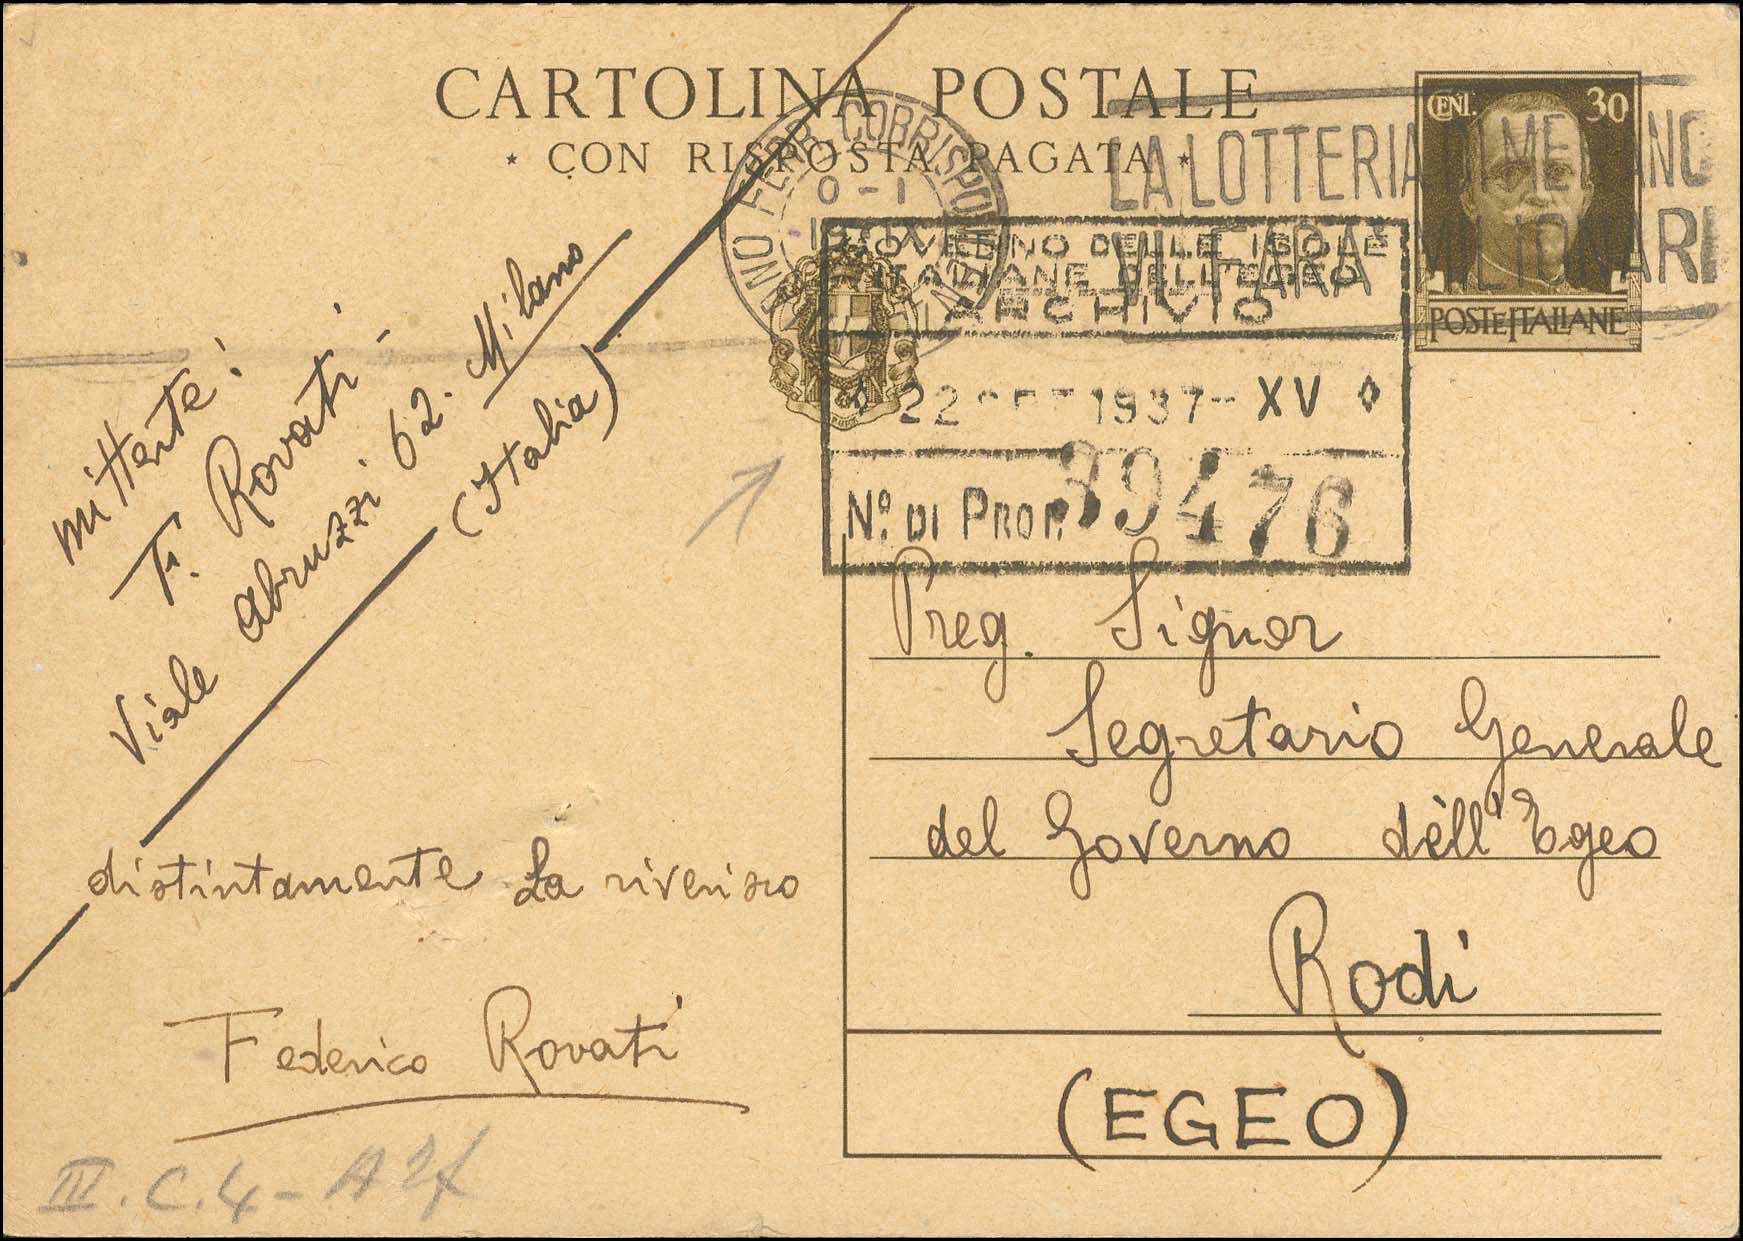 CARTOLINA POSTALE
* CON RISPOSTA PAGATA *
CENT. 30
POSTE ITALIANE
FERR. CORRISPONDENZE
LA LOTTERIA DI MERANO
VI FARA' MILIONARI
GOVERNO DELLE ISOLE
ITALIANE DELL'EGEO
ARCHIVIO
22 SET 1937-XV
Nº. DI PROT. 39476
mittente:
F. Rovati -
Viale Abruzzi 62. Milano
(Italia)
Preg. Signor
Segretario Generale
del Governo dell'Egeo
Rodi
(EGEO)
distintamente La riverisco
Federico Rovati
III. C. 4 - A